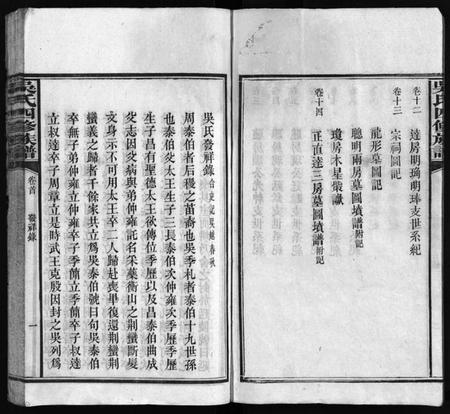 吳氏四修族譜
卷十二　達房明瑀明琫支世系紀
卷十三　宗祠圖記
龍形墓圖記
聰明兩房墓圖墳譜附記
瓊房木星儀識
卷十四　正直達三房墓圖墳譜附記
吳氏發祥錄
周泰伯者后稷之苗裔也吳季札者泰伯十九世孫
也泰伯父太王生子三長泰伯次仲雍次季歷季歷
生子昌有聖德太王欲傳位季歷以及昌泰伯曲成
父志因父病與弟仲雍託名采藥衡山之荆蠻斷髮
文身示不可用太王卒二人歸赴喪畢復還荆蠻荆
蠻義之歸者千餘家共立爲吳泰伯號曰句吳泰伯
卒無子弟仲雍立仲雍卒子季簡立季簡卒子叔達
立叔達卒子周章立是時武王克殷因封之吳列爲
吳氏四修族譜
卷首
發祥錄
一